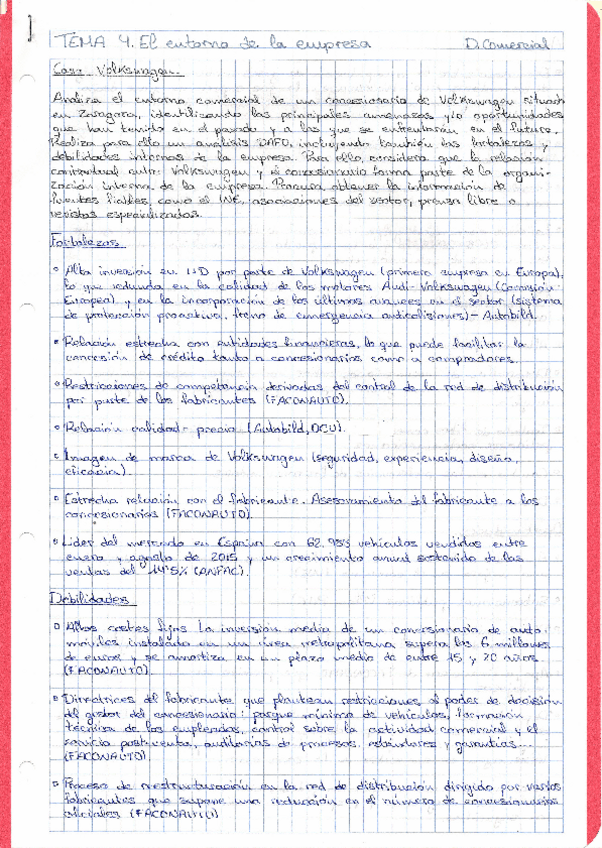 TEMA 4. El entorno de la empresa D. Comercial
Caso: Volkswagen.
Analiza el entorno comercial de un concesionario de Volkswagen situado
en Zaragoza, identificando las principales amenazas y/o oportunidades
que han tenido en el pasado y a las que se enfrentarán en el futuro.
Realiza para ello un análisis DAFO, incluyendo también las fortalezas y
debilidades internas de la empresa. Para ello, considera que la relación
contractual entre Volkswagen y el concesionario forma parte de la organi-
zación interna de la empresa. Procura obtener la información de
fuentes fiables, como el INE, asociaciones del sector, prensa libre o
revistas especializadas.
Fortalezas
• Alta inversión en I+D por parte de Volkswagen (primera empresa en Europa),
lo que redunda en la calidad de los motores Audi-Volkswagen (Comisión
Europea) y en la incorporación de los últimos avances en el sector (sistema
de protección proactiva, freno de emergencia anticolisiones) - Autobild.
• Relación estrecha con entidades financieras, lo que puede facilitar la
concesión de crédito tanto a concesionarios como a compradores.
• Restricciones de competencia derivadas del control de la red de distribución
por parte de los fabricantes (FACONAUTO).
• Relación calidad-precio (Autobild, OCU).
• Imagen de marca de Volkswagen (seguridad, experiencia, diseño,
eficacia).
• Estrecha relación con el fabricante. Asesoramiento del fabricante a los
concesionarios (FACONAUTO).
• Líder del mercado en España con 62.955 vehículos vendidos entre
enero y agosto de 2015 y un crecimiento anual sostenido de las
ventas del 14'5% (ANFAC).
Debilidades
• Altos costes fijos. La inversión media de un concesionario de auto-
móviles instalado en un área metropolitana supera los 6 millones
de euros y se amortiza en un plazo medio de entre 15 y 20 años.
(FACONAUTO)
• Directrices del fabricante que plantean restricciones al poder de decisión
del gestor del concesionario: parque mínimo de vehículos, formación
técnica de los empleados, control sobre la actividad comercial y el
servicio postventa, auditorías de procesos, estándares y garantías...
(FACONAUTO)
• Proceso de reestructuración en la red de distribución dirigido por varios
fabricantes que supone una reducción en el número de concesionarios
oficiales (FACONAUTO)